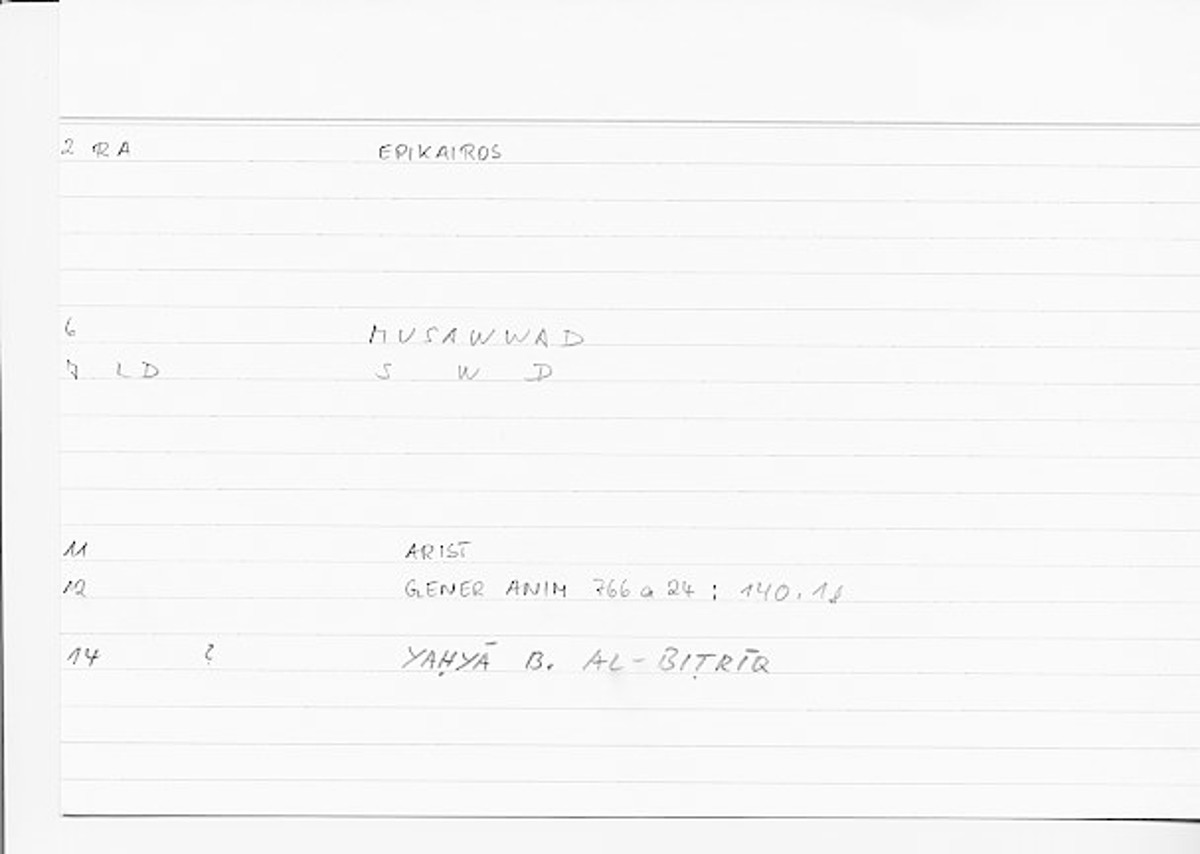 2 RA EPIKAIROS
6 MUSAWWAD
7 LD S W D
11 ARIST
12 GENER ANIM 766 a 24 : 140,18
14 ? YAḤYĀ B. AL-BIṬRĪQ